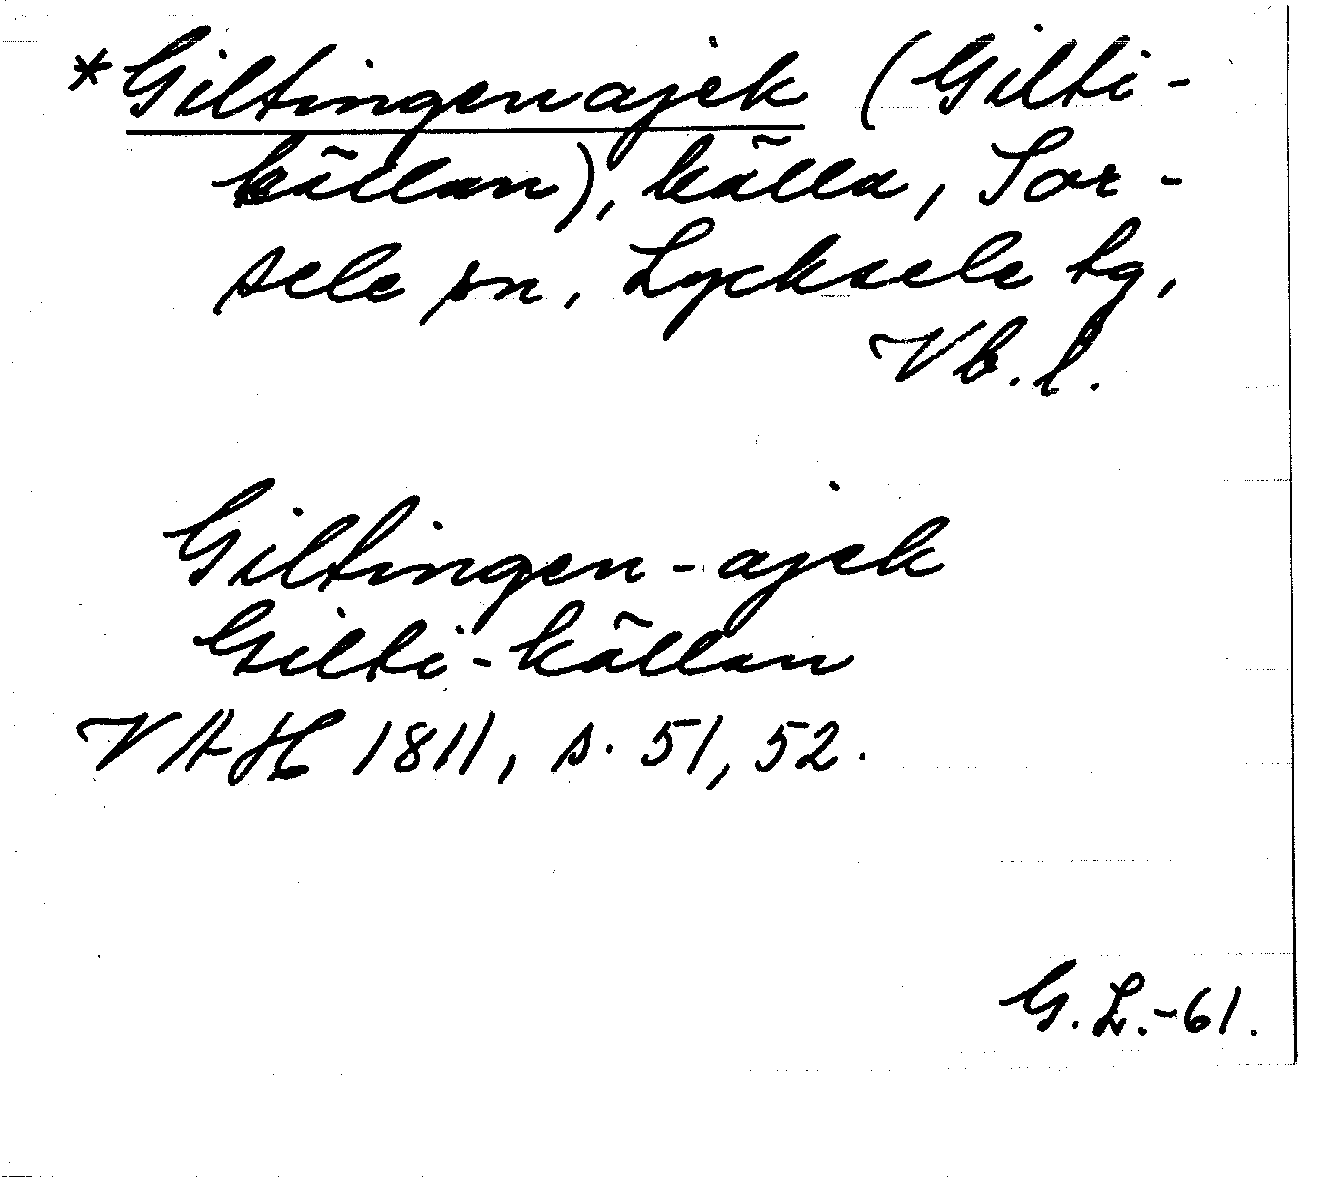 *Giltingenajek (Gilti-
källan), källa, Sor-
sele sn, Lycksele lg,
Vb. l.
Giltingen-ajek
Gilti-källan
VAH 1811, s. 51, 52.
G. L.-61.